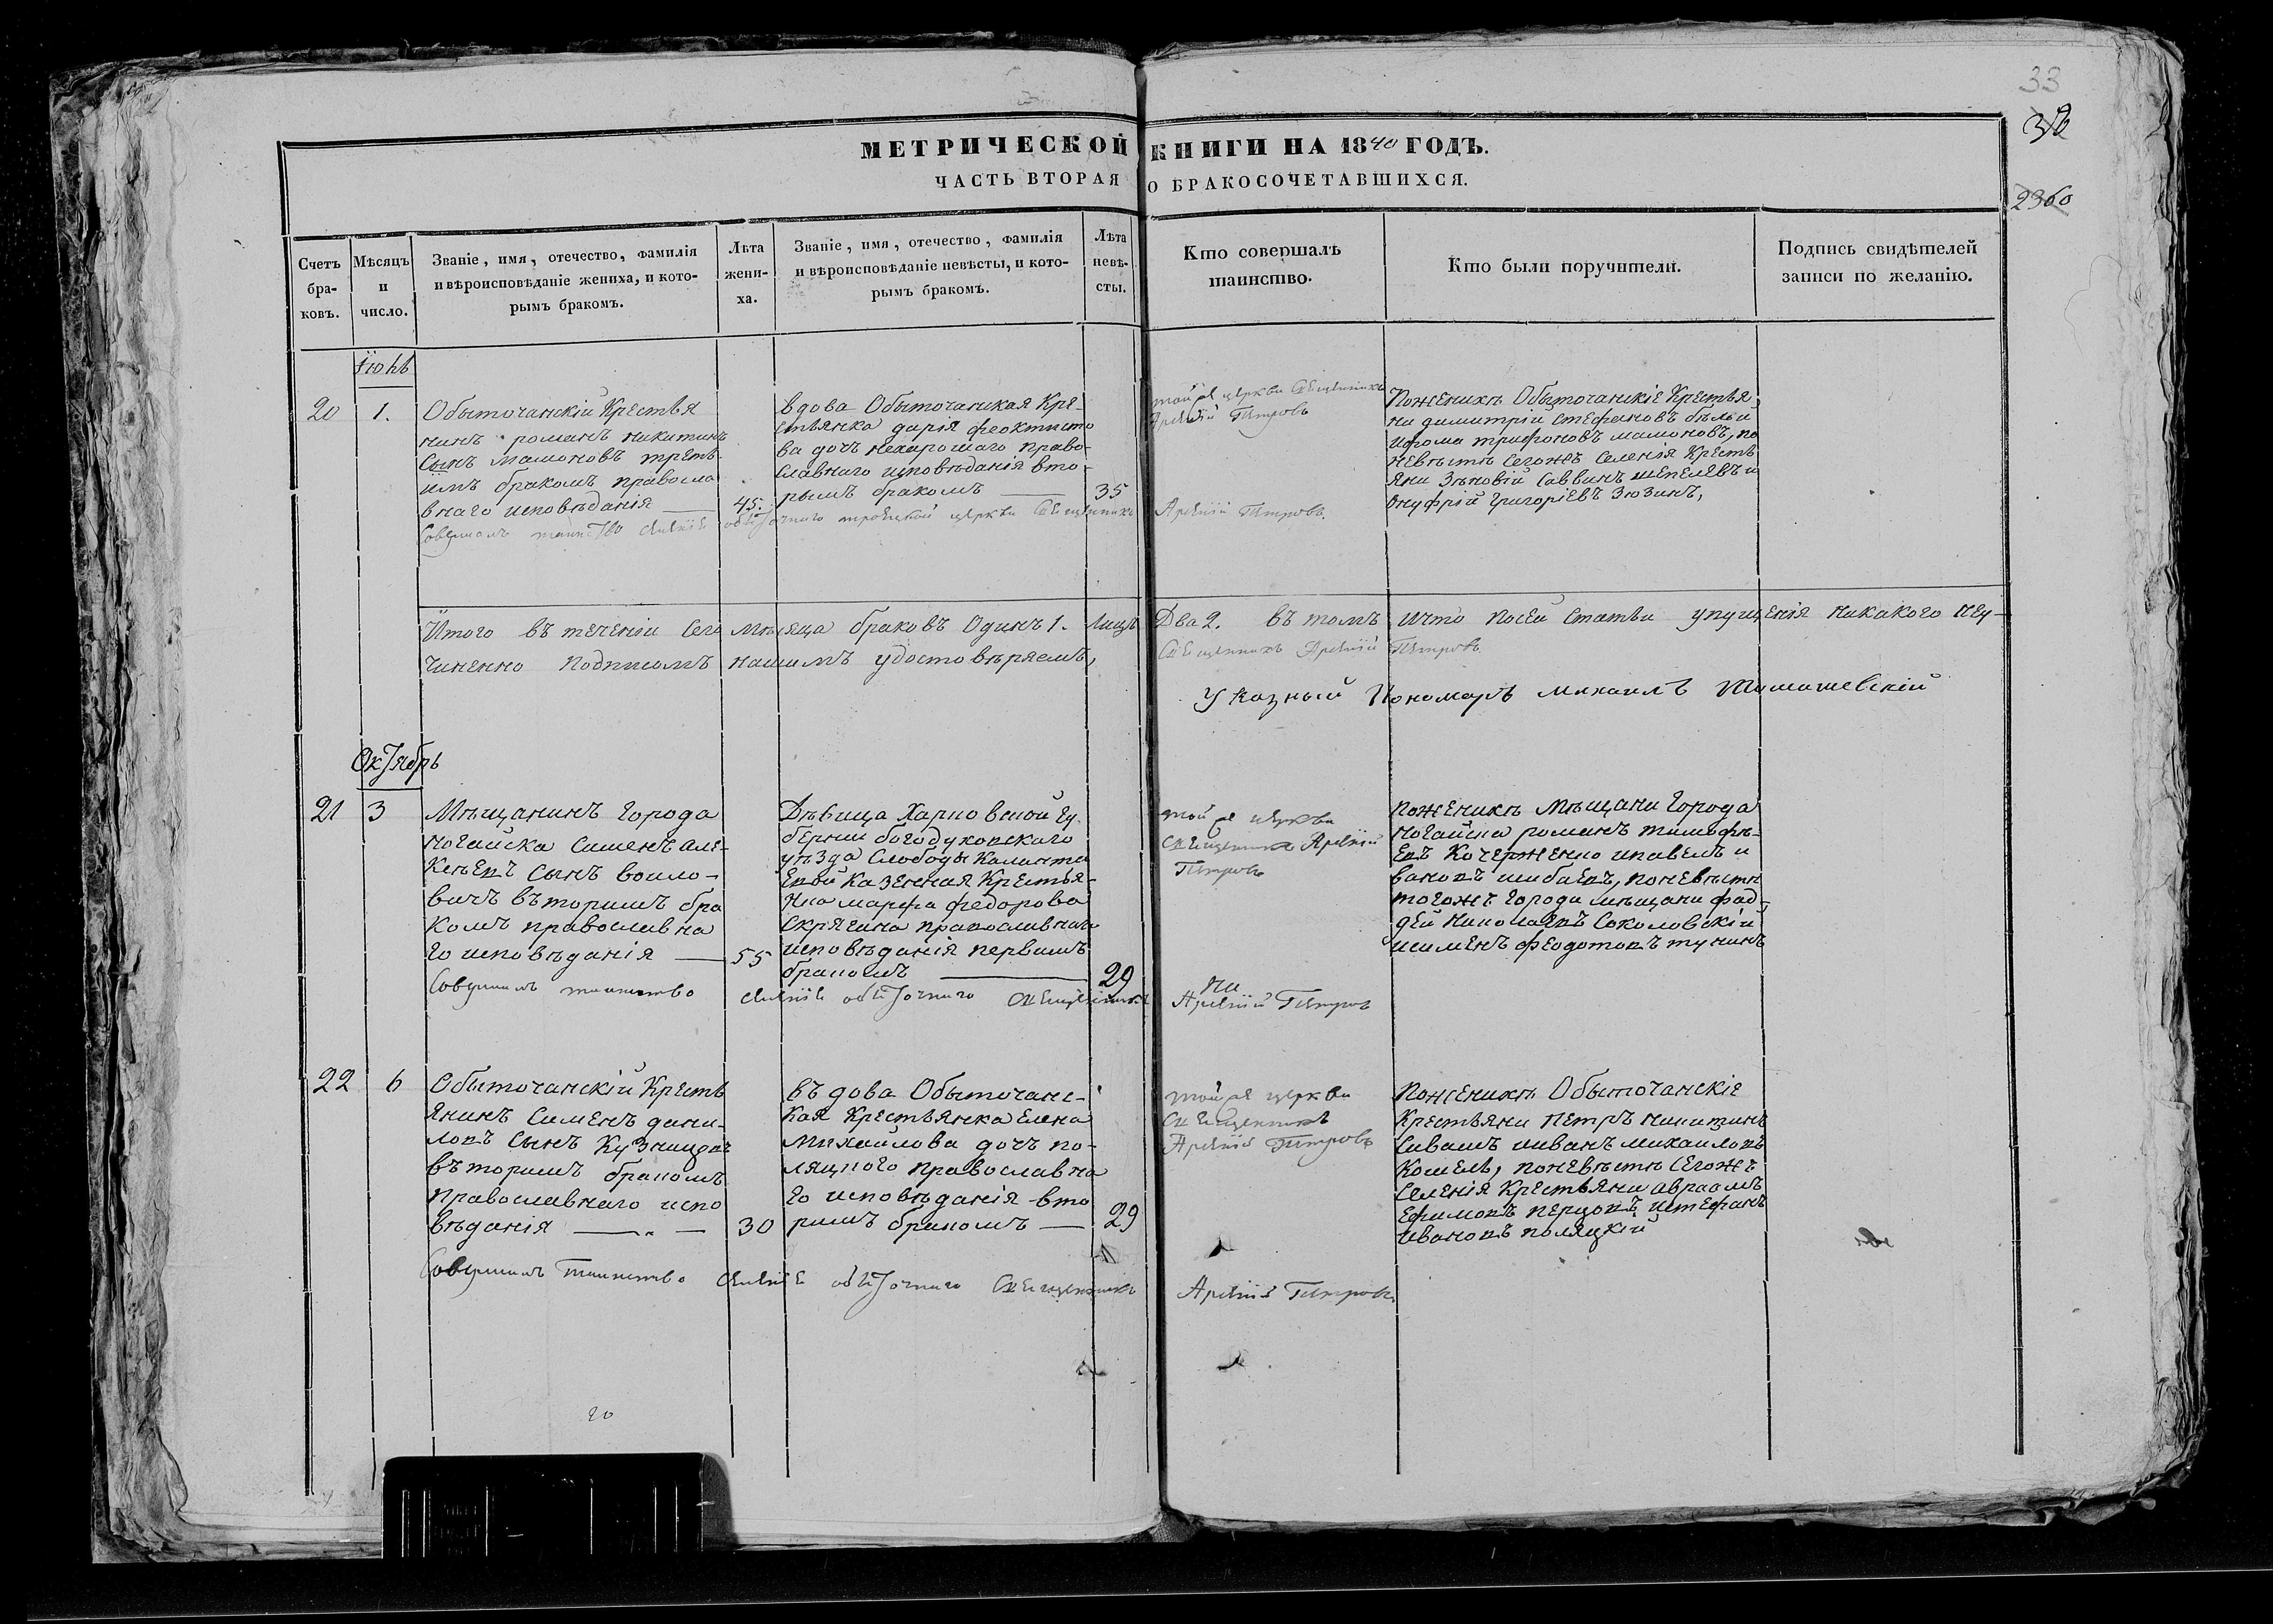 33
2360
МЕТРИЧЕСКОЙ КНИГИ НА 1840 ГОДЪ.
ЧАСТЬ ВТОРАЯ О БРАКОСОЧЕТАВШИХСЯ.
Счетъ бра-ковъ.
Мѣсяцъ и число.
Званіе, имя, отечество, фамилія
и вѣроисповѣданіе жениха, и кото-
рымъ бракомъ.
Лѣта жени-ха.
Званіе, имя, отечество, фамилія
и вѣроисповѣданіе невѣсты, и кото-
рымъ бракомъ.
Лѣта невѣ-сты.
Кто совершалъ
таинство.
Кто были поручители.
Подпись свидѣтелей
записи по желанію.
Іюнь
20
1.
Обыточанскій Крестья
нинъ романъ никитинъ
Сынъ мамоновъ треть
имъ бракомъ правосла
внаго исповѣданія
45.
вдова Обыточанская Кре-
стьянка дарія феоктисто
ва дочь нехарошаго право-
славнаго исповѣданія вто-
рымъ бракомъ
35
той же церкви Священникъ
Арсеній Петровъ
Поженихѣ Обыточанскіе Крестья
ни димитрій стефановъ бѣлый
ифома трифоновъ мамоновъ, по
невѣстѣ сегожъ селенія Кресть
яни Зѣновій Саввинъ шепелевъ и
Онуфрій григоріевъ Зюзинъ,
Совершалъ таинство обыточнаго троецкой церкви Священникъ Арсеній Петровъ.
Итого въ теченіи сего мѣсяца браковъ Одинъ 1. лицъ Два 2. въ томъ ичто посей статьи упущенія никакого неу-
чиненно подписомъ нашимъ удостовѣряемъ,
Священникъ Арсеній Петровъ
Указный Пономарь михаилъ Тимошевскій
Октябрь
21
3
Мѣщанинъ Города
ногайска Сименъ але-
Ксѣевъ сынъ воило-
вичъ въторимъ бра
Комъ православна
го исповѣданія
55
Дѣвица Харковской гу
берніи богодуховского
уѣзда Слободы Калантa
евой Казенная Крестья-
нка марфа федорова
Скрягина православнаго
исповѣданія первимъ
бракомъ
29
той же церкви
Священникъ Арсеній
Петровъ
поженихѣ мѣщани города
ногайска романъ тимофѣ-
евъ Кочерженко ипавелъ и
вановъ шибаевъ, поневѣстѣ
тогожъ города мѣщани фад-
дей николаевъ Соколовскій
исименъ феодотовъ тунинъ
Совершалъ таинство обыточнаго Священникъ Арсеній Петровъ
22
6
Обыточанскій Кресть
янинъ Сименъ дани-
ловъ Сынъ Кузницовъ
въторимъ бракомъ
Православнаго испо
вѣданія
30
въдова Обыточанс-
кая Крестьянка Елена
Михайлова дочь по-
ляцкого православна
го исповѣданія вто
римъ бракомъ
29
той же церкви
Священникъ
Арсеній Петровъ
Поженихѣ Обыточанскіе
Крестьяни петръ никитинъ
Сивашъ ииванъ михаиловъ
Кошель, поневѣстѣ сегожъ
Селенія Крестьяни авраамъ
Ефимовъ перцовъ истефанъ
Ивановъ поляцкій
Совершалъ таинство обыточнаго Священникъ Арсеній Петровъ
20